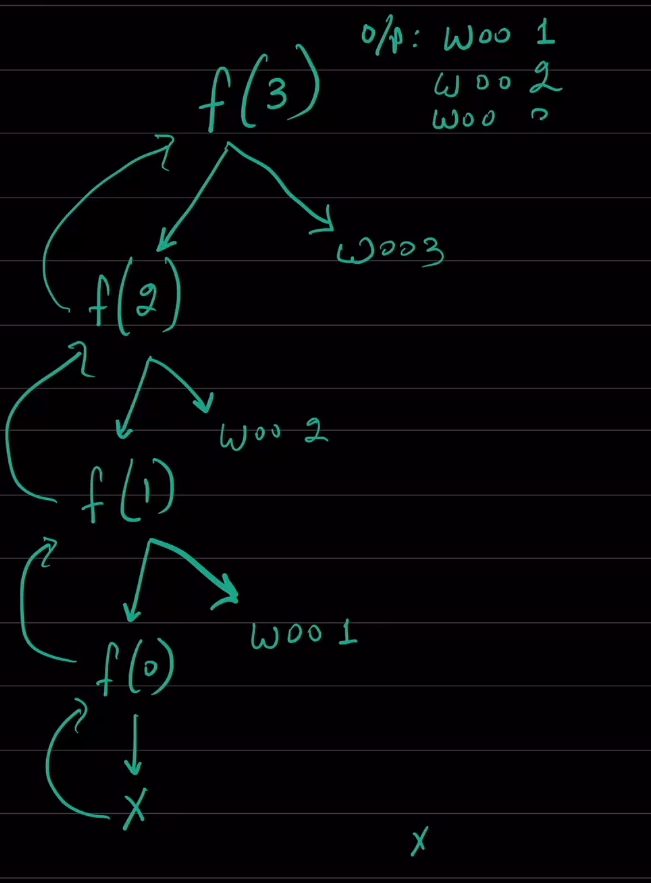 o/p: woo 1
woo 2
woo
f(3)
woo3
f(2)
woo 2
f(1)
woo 1
f(0)
X
x